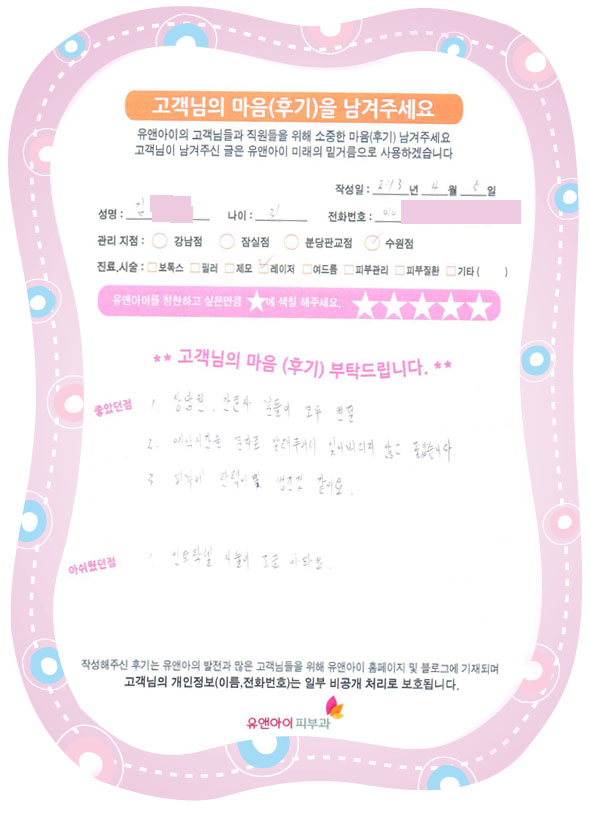 고객님의 마음(후기)을 남겨주세요
유앤아이의 고객님들과 직원들을 위해 소중한 마음(후기) 남겨주세요
고객님이 남겨주신 글은 유앤아이 미래의 밑거름으로 사용하겠습니다
작성일 : 2013 년 4 월 5 일
성명 : 나이 : 전화번호 : 010
관리 지점 : 강남점 잠실점 분당판교점 수원점
진료,시술 : 보톡스 필러 제모 레이저 여드름 피부관리 피부질환 기타 ( )
유앤아이를 칭찬하고 싶은만큼 ★에 색칠 해주세요. ★★★★★
** 고객님의 마음 (후기) 부탁드립니다. **
좋았던점 1. 상담원, 간호사 분들이 모두 친절
2. 예약시간을 문자로 알려주셔서 잊어버리지 않고 좋았습니다
3. 피부에 탄력이 생긴것 같아요.
아쉬웠던점 1. 인트라셀 시술이 조금 아파요.
작성해주신 후기는 유앤아의 발전과 많은 고객님들을 위해 유앤아이 홈페이지 및 블로그에 기재되며
고객님의 개인정보(이름,전화번호)는 일부 비공개 처리로 보호됩니다.
유앤아이피부과